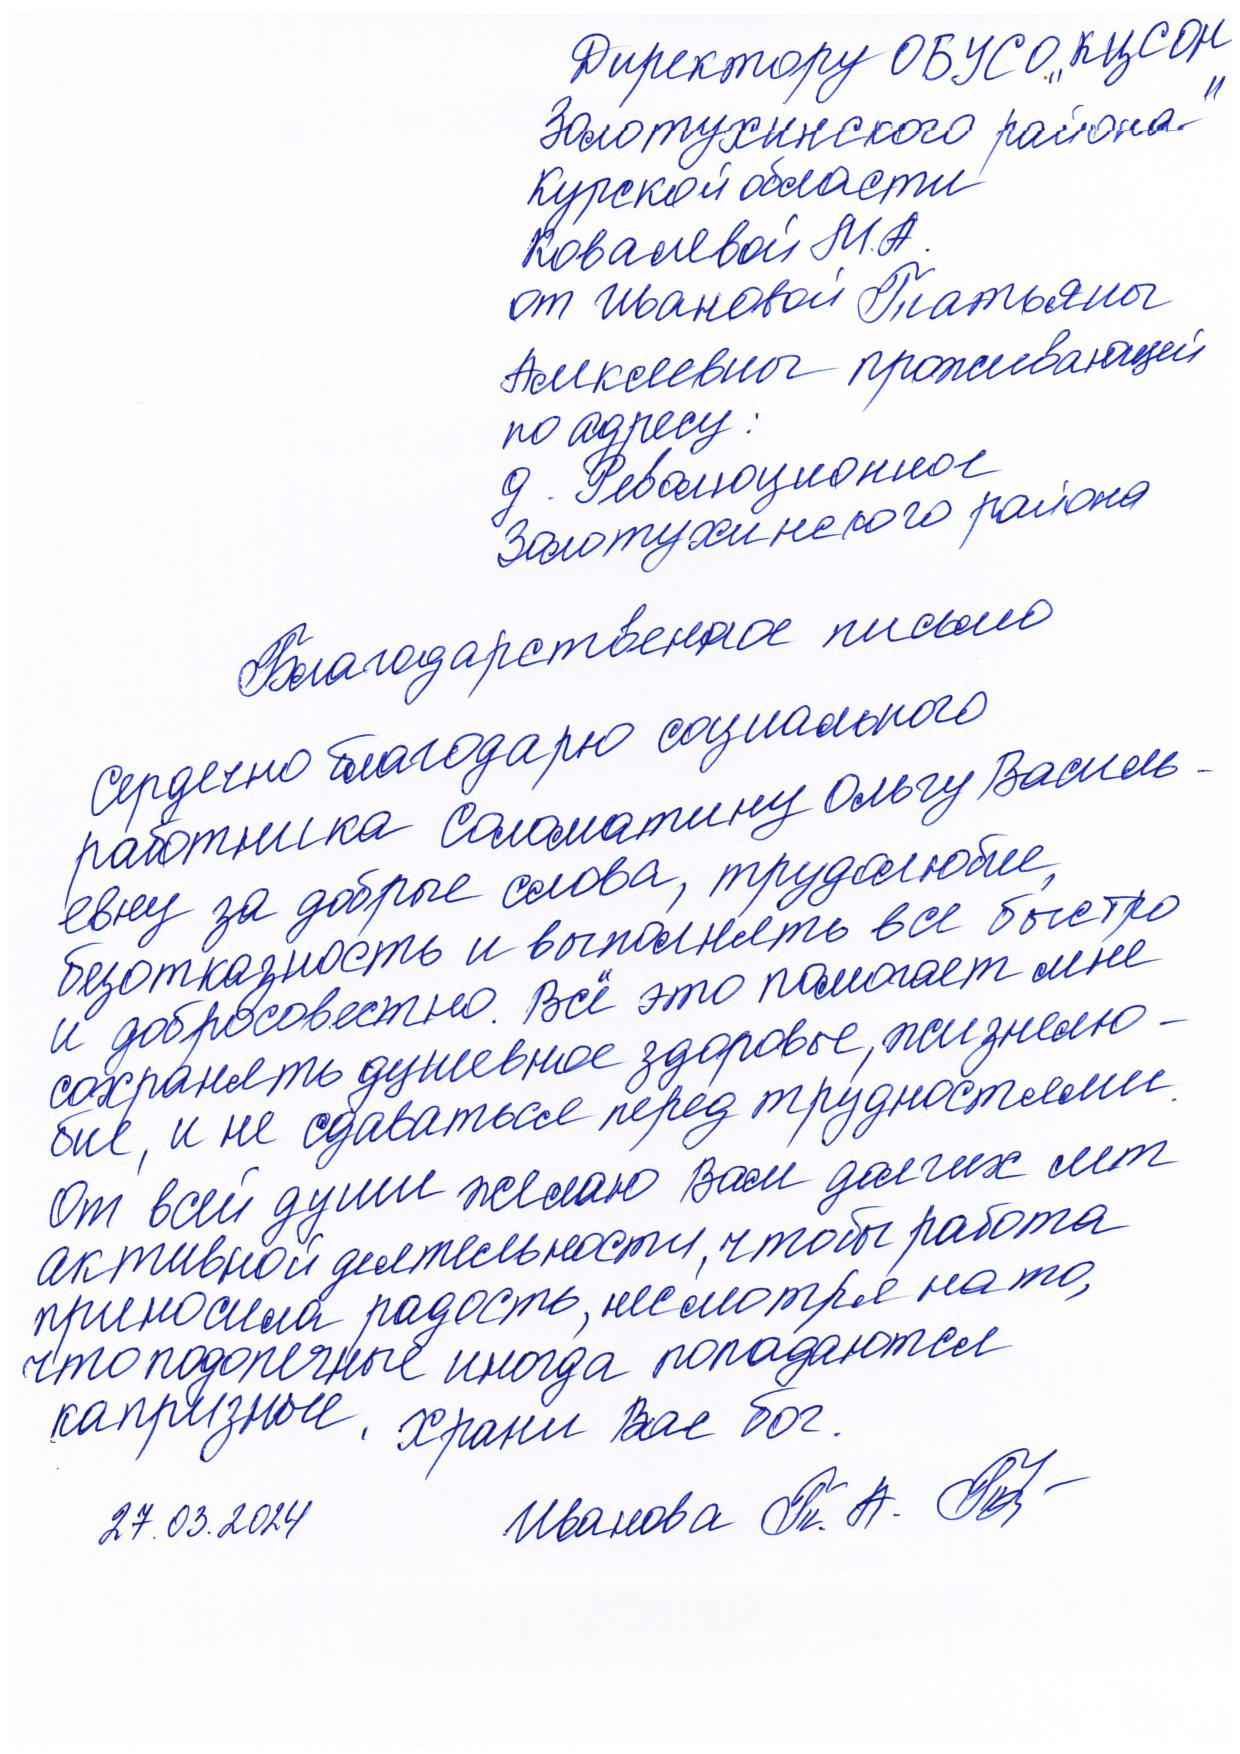 Директору ОБУСО „КЦСОН
Золотухинского района"
Курской области
Ковалевой М.А.
от Ивановой Татьяны
Алексеевны проживающей
по адресу:
д. Революционное
Золотухинского района
Благодарственное письмо
Сердечно благодарю социального
работника Соломатину Ольгу Василь-
евну за добрые слова, трудолюбие,
безотказность и выполнять все быстро
и добросовестно. Всё это помогает мне
сохранять душевное здоровье, жизнелю-
бие, и не сдаваться перед трудностями.
От всей души желаю Вам долгих лет
активной деятельности, чтобы работа
приносила радость, несмотря на то,
что подопечные иногда попадаются
капризные. Храни Вас бог.
27.03.2024 Иванова Т. А.